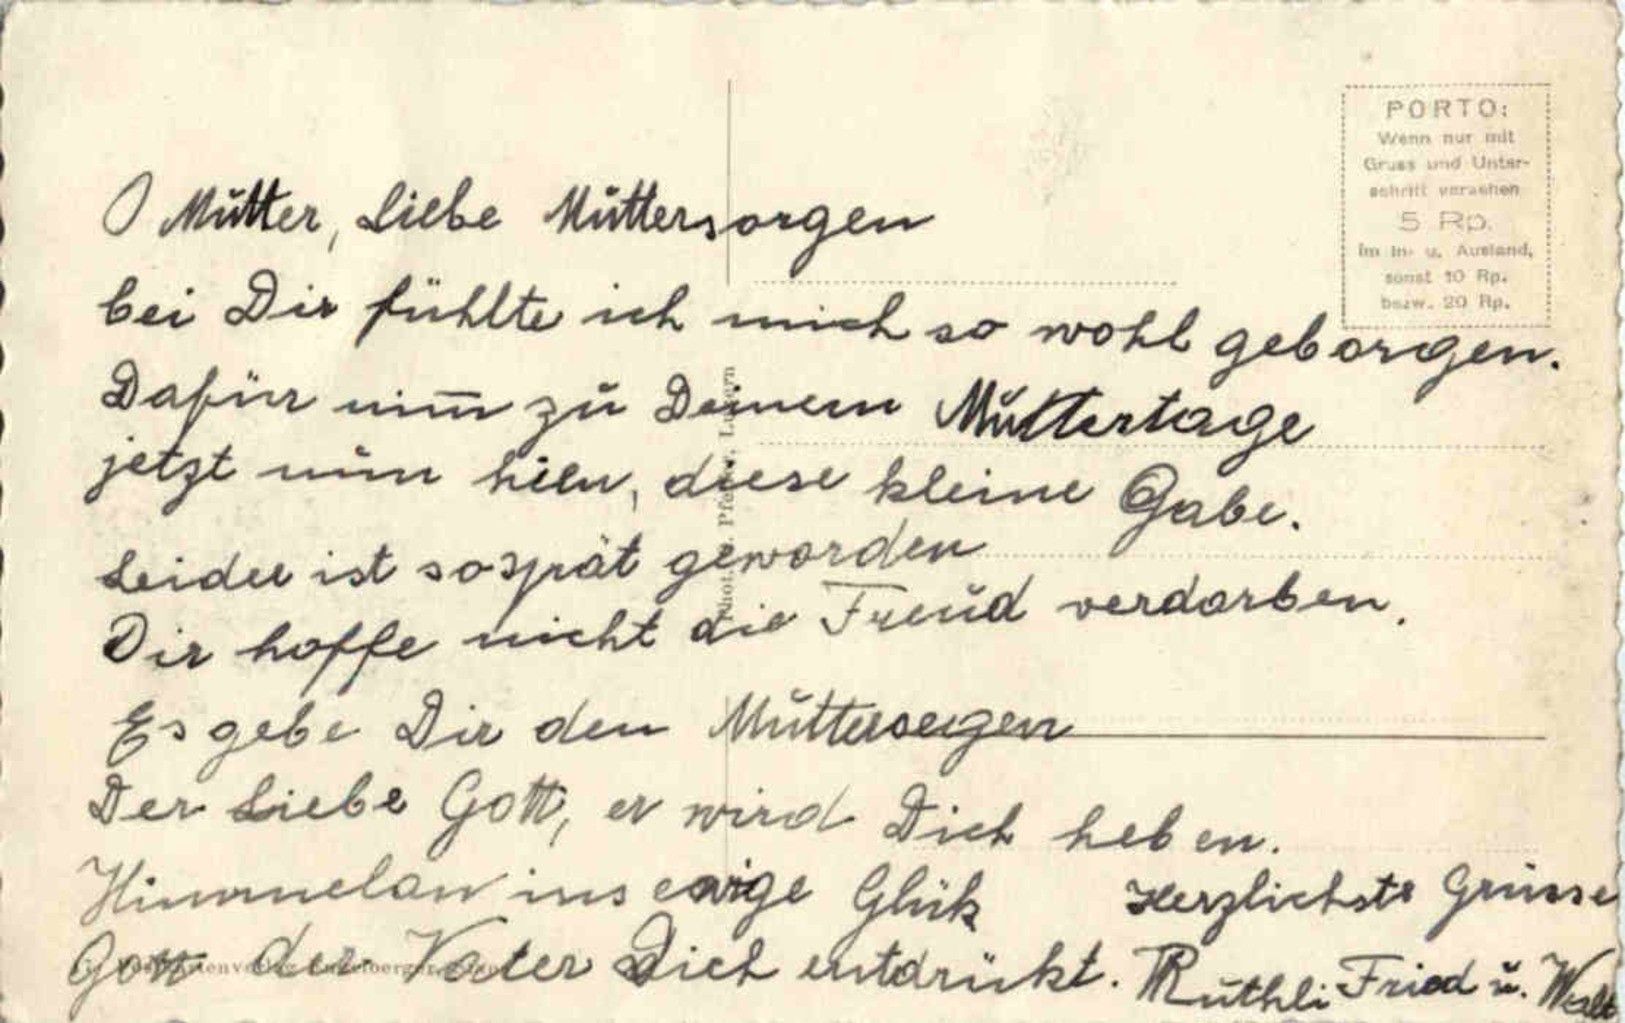 PORTO:
Wenn nur mit
Gruss und Unter-
schrift versehen
5 Rp.
im In- u. Ausland,
sonst 10 Rp.
bezw. 20 Rp.
O Mutter, Liebe Muttersorgen
bei Dir fühlte ich mich so wohl geborgen.
Dafür nim̅ zu Deinem Muttertage
jetzt nun hien, diese kleine Gabe.
Leider ist so spät geworden
Dir hoffe nicht die Freud verdorben.
Es gebe Dir den Muttersegen
Der Liebe Gott, er wird Dich heben.
Himmelan ins ewige Glük
Gott der Vater Dich entdrükt.
Herzlichste Grüsse
Ruthli Fried u.
Phot. Pfeifer, Luzern